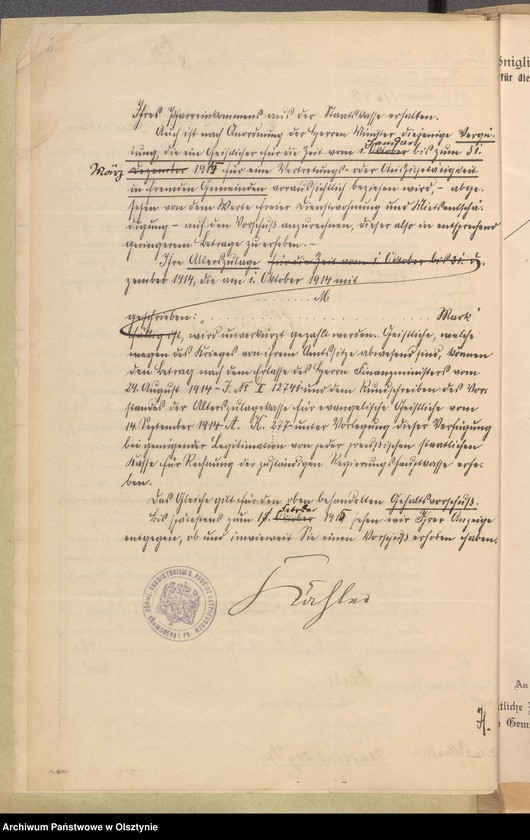 Ihres Pfarreinkommens aus der Staatskasse erhalten.
Auch ist nach Anordnung der Herren Minister diejenige Vergü-
tung, die ein Geistlicher für die Zeit vom 1. Oktober Januar bis zum 31.
März Dezember 1915 für eine Vertretungs- oder Aushilfstätigkeit
in fremden Gemeinden voraussichtlich beziehen wird, - abge-
sehen von dem Werte freier Dienstwohnung und Mietsentschä-
digung - auf den Vorschuß anzurechnen, dieser also in entsprechend
geringerem Betrage zu erheben. -
Ihre Alterszulage für die Zeit vom 1. Oktober bis 31. De-
zember 1914, die am 1. Oktober 1914 mit
M
geschrieben: „ Mark"
fällig ist, wird unverkürzt gezahlt werden. Geistliche, welche
wegen des Krieges von ihrem Amtssitze abwesend sind, können
den Betrag nach dem Erlasse des Herrn Finanzministers vom
24. August 1914 - J. № I 12741 und dem Rundschreiben des Vor-
standes der Alterszulagekasse für evangelische Geistliche vom
14. September 1914 A. K. 277 unter Vorlegung dieser Verfügung
bei genügender Legitimation von jeder preußischen staatlichen
Kasse für Rechnung der zuständigen Regierungshauptkasse erhe-
ben.
Das Gleiche gilt für den oben behandelten Gehaltsvorschuß.
Bis spätestens zum Oktober Februar 1915 sehen wir Ihrer Anzeige
entgegen, ob und inwieweit Sie einen Vorschuß erhoben haben.
Kähler
önigli
für die
An
tliche
Gem
H.
Archiwum Państwowe w Olsztynie